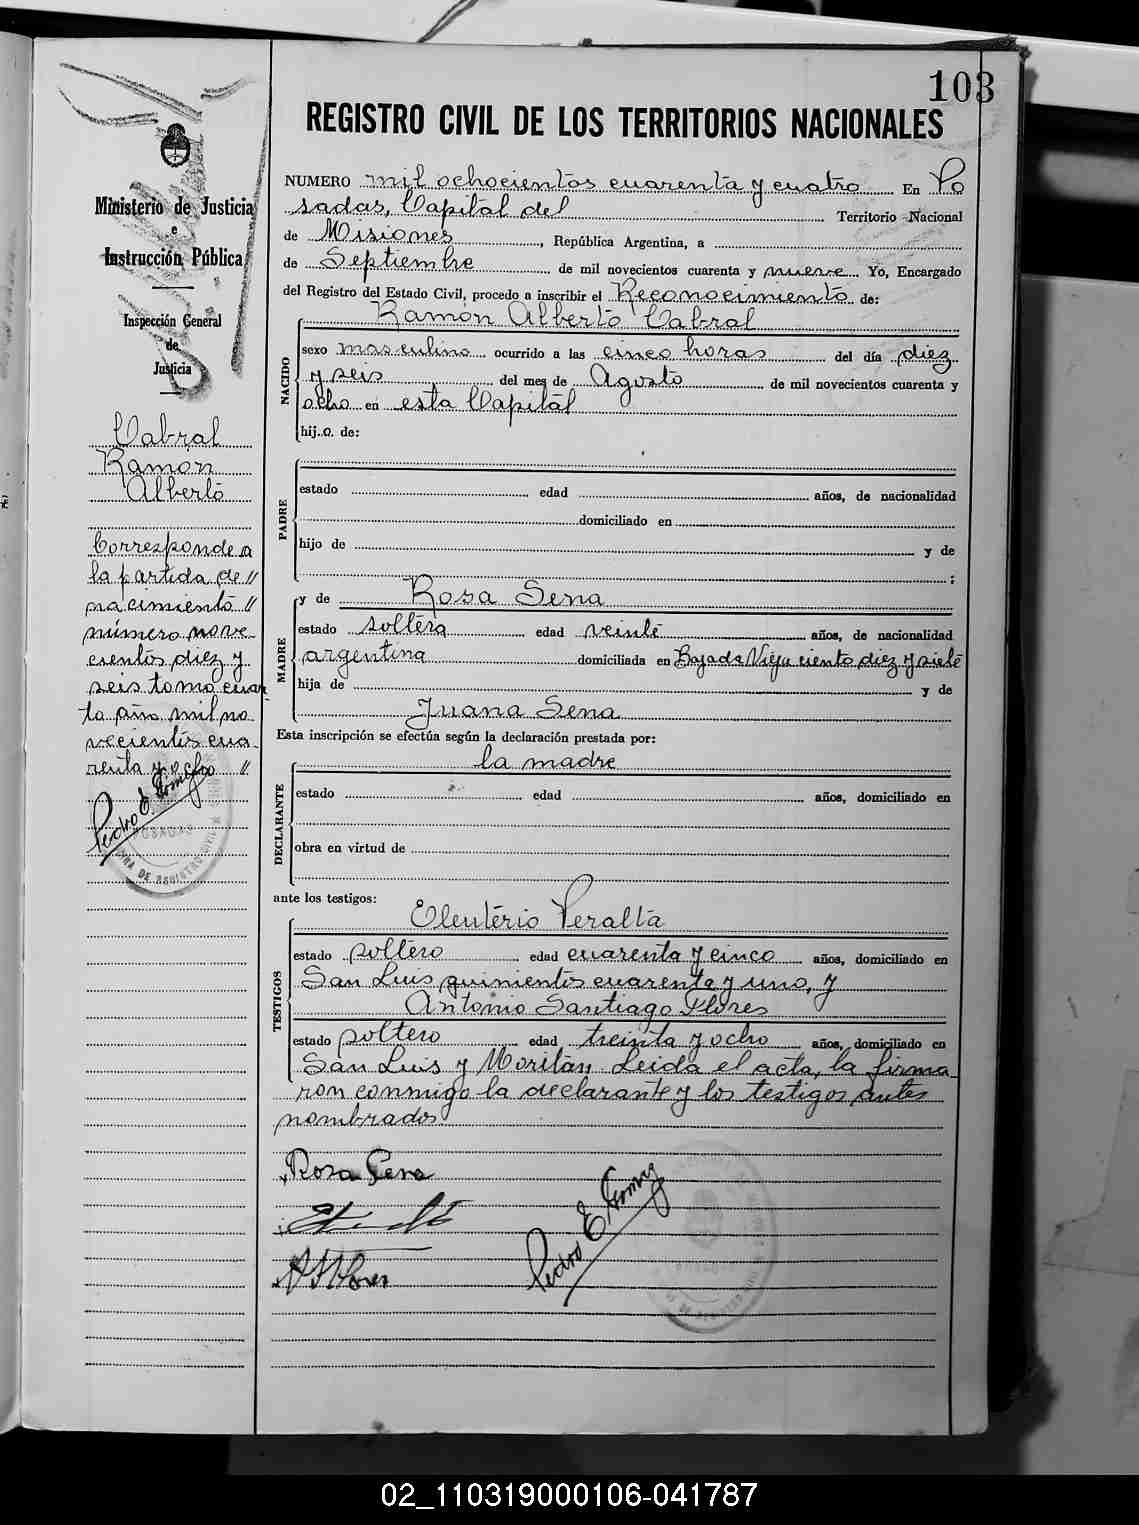 103
REGISTRO CIVIL DE LOS TERRITORIOS NACIONALES
Ministerio de Justicia
e
Instrucción Pública
Inspección General
de
Justicia
Cabral
Ramón
Alberto
Corresponde a
la partida de "
nacimiento "
número nove-
cientos diez y
seis tomo cuar
to año mil no
vecientos cua-
renta y ocho "
Pedro E.
POSADAS
NUMERO mil ochocientos cuarenta y cuatro En Po
sadas, Capital del Territorio Nacional
de Misiones, República Argentina, a
de Septiembre de mil novecientos cuarenta y nueve Yo, Encargado
del Registro del Estado Civil, procedo a inscribir el Reconocimiento de:
Ramón Alberto Cabral
NACIDO
sexo masculino ocurrido a las cinco horas del día diez
y seis del mes de Agosto de mil novecientos cuarenta y
ocho en esta Capital
hijo de:
PADRE
estado edad años, de nacionalidad
domiciliado en
hijo de y de
;
MADRE
y de Rosa Sena
estado soltera edad veinte años, de nacionalidad
argentina domiciliada en Bajada Vieja ciento diez y siete
hija de y de
Juana Sena
Esta inscripción se efectúa según la declaración prestada por:
DECLARANTE
la madre
estado edad años, domiciliado en
obra en virtud de
ante los testigos:
TESTIGOS
Eleuterio Peralta
estado soltero edad cuarenta y cinco años, domiciliado en
San Luis quinientos cuarenta y uno, y
Antonio Santiago Flores
estado soltero edad treinta y ocho años, domiciliado en
San Luis y Moritán. Leida el acta, la firma-
ron conmigo la declarante y los testigos antes
nombrados
Rosa Sena
A S Flores
Pedro E.
02_110319000106-041787